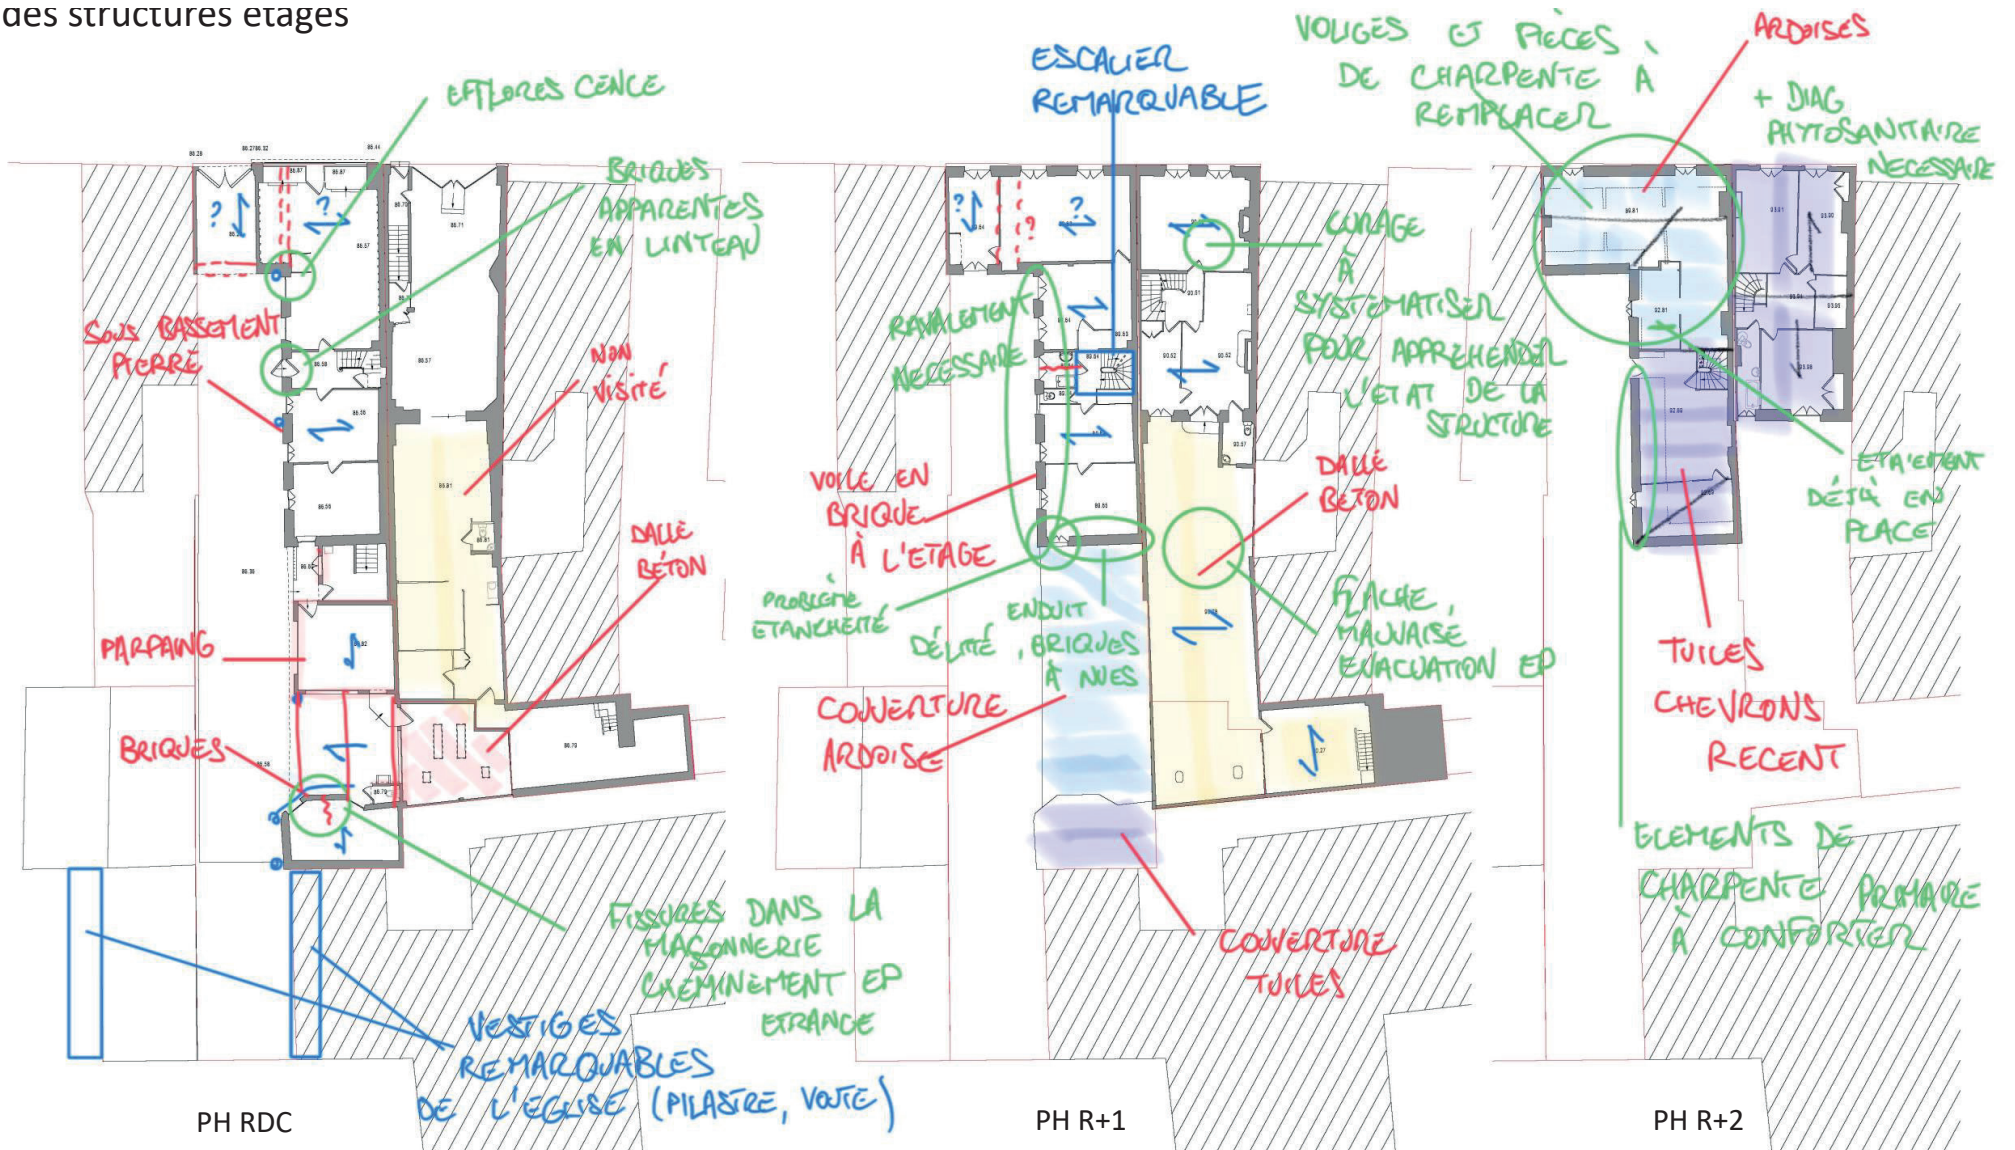 des structures étages
EFFLORES CENCE
BRIQUES
APPARENTES
EN LINTEAU
SOUS BASSEMENT
PIERRE
NON
VISITÉ
DALLE
BÉTON
PARPAING
BRIQUES
FISSURES DANS LA
MAÇONNERIE
CHEMINEMENT EP
ETRANGE
VESTIGES
REMARQUABLES
DE L'EGLISE (PILASTRE, VOUTE)
PH RDC
ESCALIER
REMARQUABLE
RAVALEMENT
NECESSAIRE
CURAGE
À
SYSTEMATISER
POUR APPREHENDER
L'ETAT DE LA
STRUCTURE
VOILE EN
BRIQUE
À L'ETAGE
DALLE
BETON
PROBLÈME
ETANCHEITÉ
ENDUIT
DÉLITÉ, BRIQUES
À NUES
FLACHE,
MAUVAISE
EVACUATION EP
COUVERTURE
ARDOISE
COUVERTURE
TUILES
PH R+1
VOLIGES ET PIÈCES
DE CHARPENTE À
REMPLACER
ARDOISES
+ DIAG
PHYTOSANITAIRE
NECESSAIRE
ETAIEMENT
DÉJÀ EN
PLACE
TUILES
CHEVRONS
RECENT
ELEMENTS DE
CHARPENTE PRIMAIRE
À CONFORTER
PH R+2